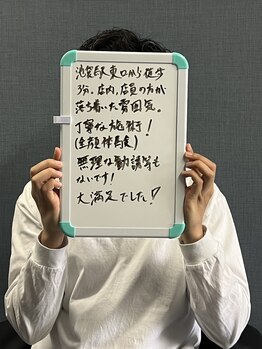 池袋駅東口から徒歩
3分。店内、店員の方が
落ち着いた雰囲気。
丁寧な施術！
(生顔体馬友)
無理な勧誘等も
ないです！
大満足でした！